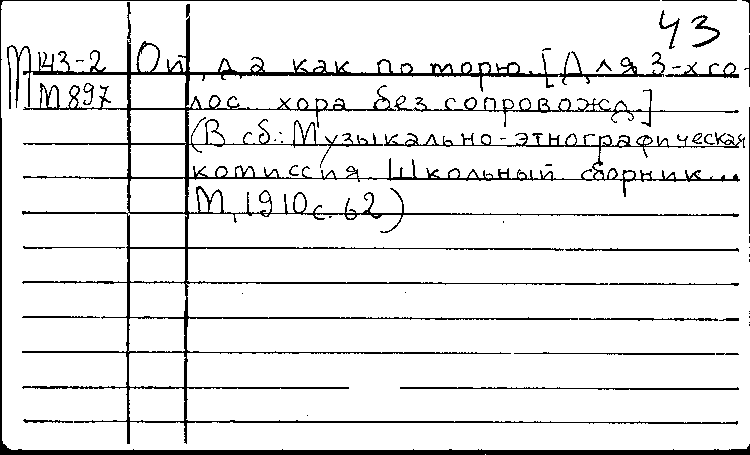 43
М143-2 Ой, да как по торю. [Для 3-х го-
М897 лос. хора без сопровожд.]
(В сб.: Музыкально-этнографическая
комиссия. Школьный сборник...
М., 1910 с. 62)